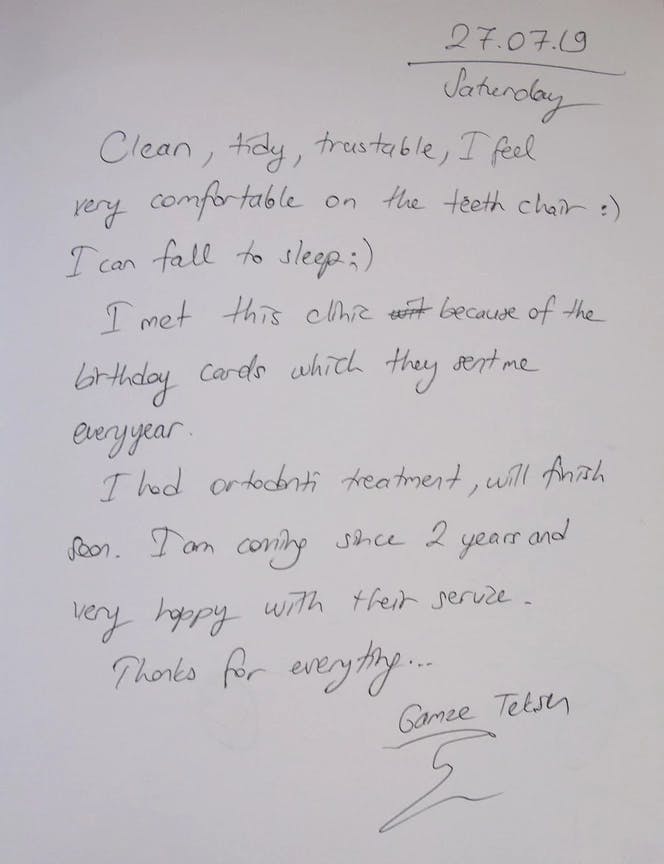 27.07.19
Saturday
Clean, tidy, trustable, I feel
very comfortable on the teeth chair :)
I can fall to sleep :)
I met this clinic because of the
birthday cards which they sent me
every year.
I had ortodonti treatment, will finish
soon. I am coming since 2 years and
very happy with their service.
Thanks for everyting...
Gamze